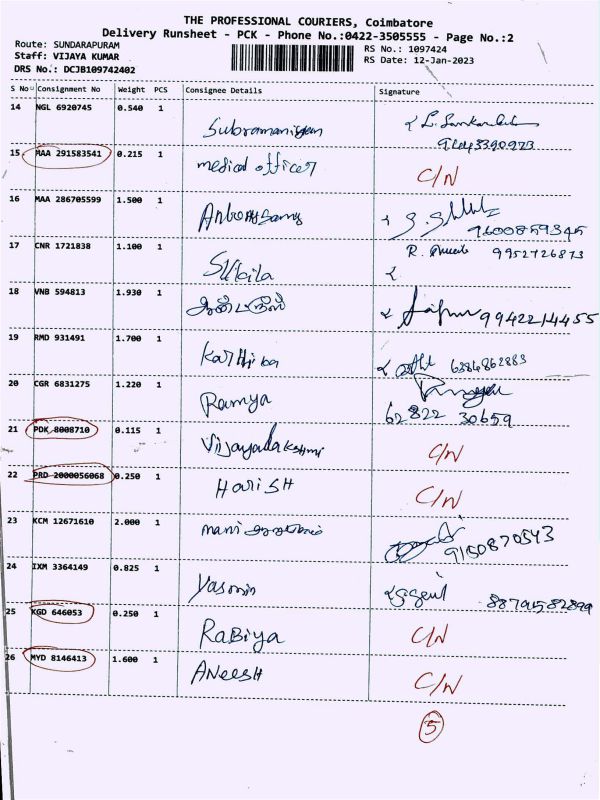 THE PROFESSIONAL COURIERS, Coimbatore
Delivery Runsheet - PCK - Phone No.:0422-3505555 - Page No.:2
Route: SUNDARAPURAM RS No.: 1097424
Staff: VIJAYA KUMAR RS Date: 12-Jan-2023
DRS No.: DCJB109742402
S No Consignment No Weight PCS Consignee Details Signature
14 NGL 6920745 0.540 1 Subramaniyam
15 MAA 291583541 0.215 1 medical officer C/N
16 MAA 286705599 1.500 1 9600859345
17 CNR 1721838 1.100 1 R. 9952726873
18 VNB 594813 1.930 1 9942214455
19 RMD 931491 1.700 1 Karthika 6384862883
20 CGR 6831275 1.220 1 Ramya 62822 30659
21 PDK 8008710 0.115 1 Vijayalakshmi C/N
22 PRD 2000056068 0.250 1 HARISH C/N
23 KCM 12671610 2.000 1 mani 9150870543
24 IXM 3364149 0.825 1 Yasmin
25 KGD 646053 0.250 1 RaBiya C/N
26 MYD 8146413 1.600 1 ANeesH C/N
5